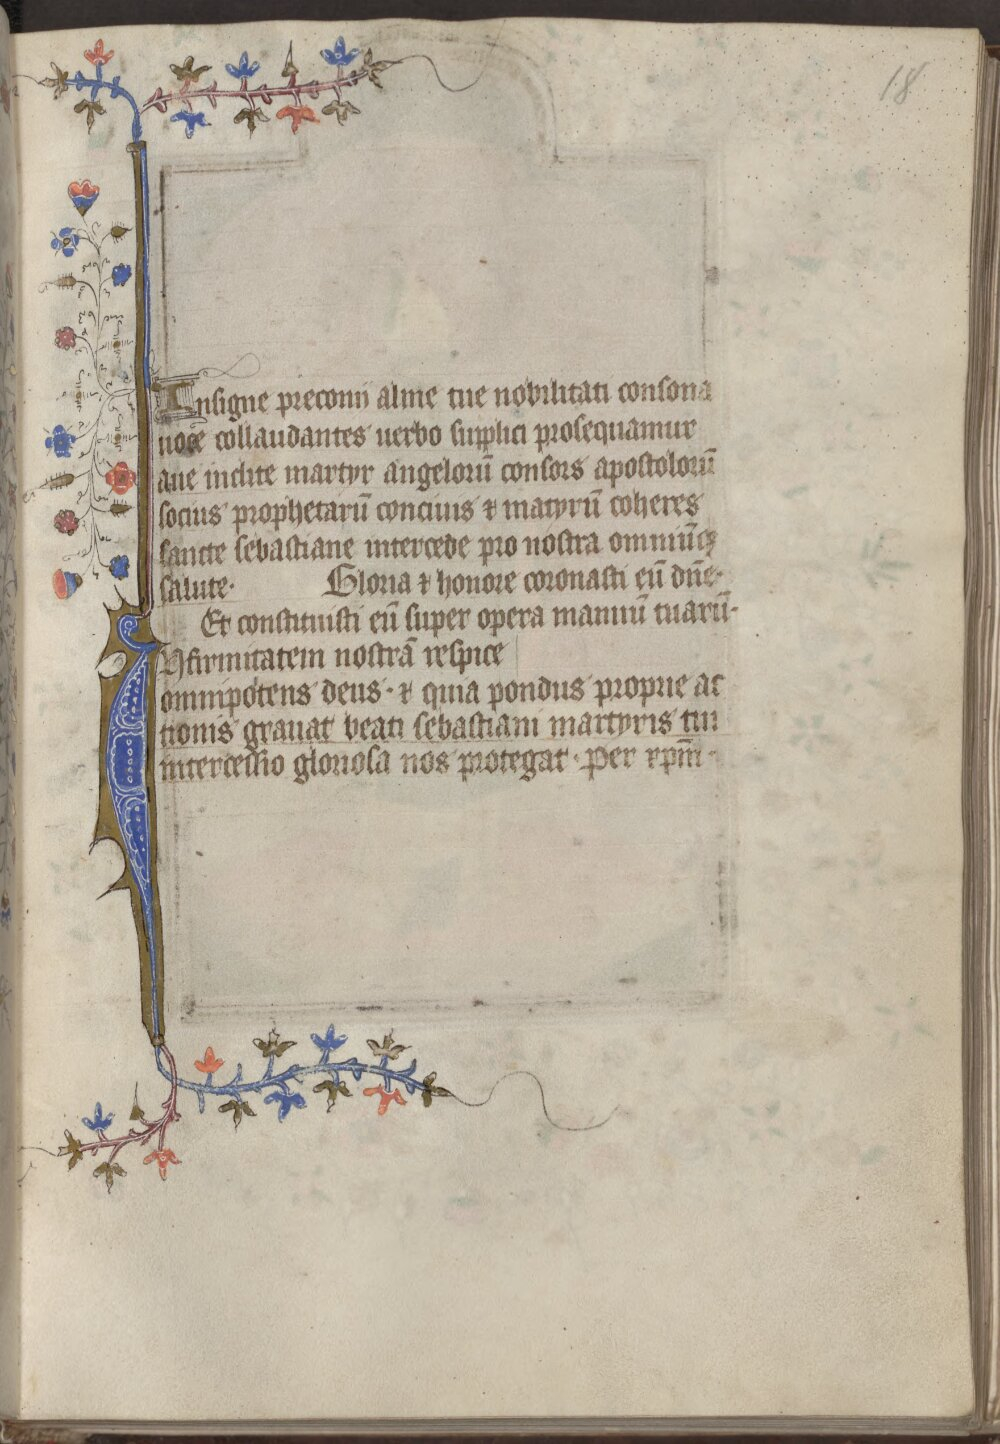 18
Insigne preconii alme tue nobilitati consona
uoce collaudantes uerbo supplici prosequamur
aue inclite martyr angelorū consors apostolorū
socius prophetarū conciuis ⁊ matyrū coheres
sancte sebastiane intercede pro nostra omniūqꝫ
salute· Gloria ⁊ honore coronasti eū dn̄e·
Et constituisti eū super opera manuū tuarū·
Nfirmitatem nostrā respice
omnipotens deus· ⁊ quia pondus proprie ac
tionis grauat beati sebastiani martyris tui
intercessio gloriosa nos protegat· Per xp̄m·